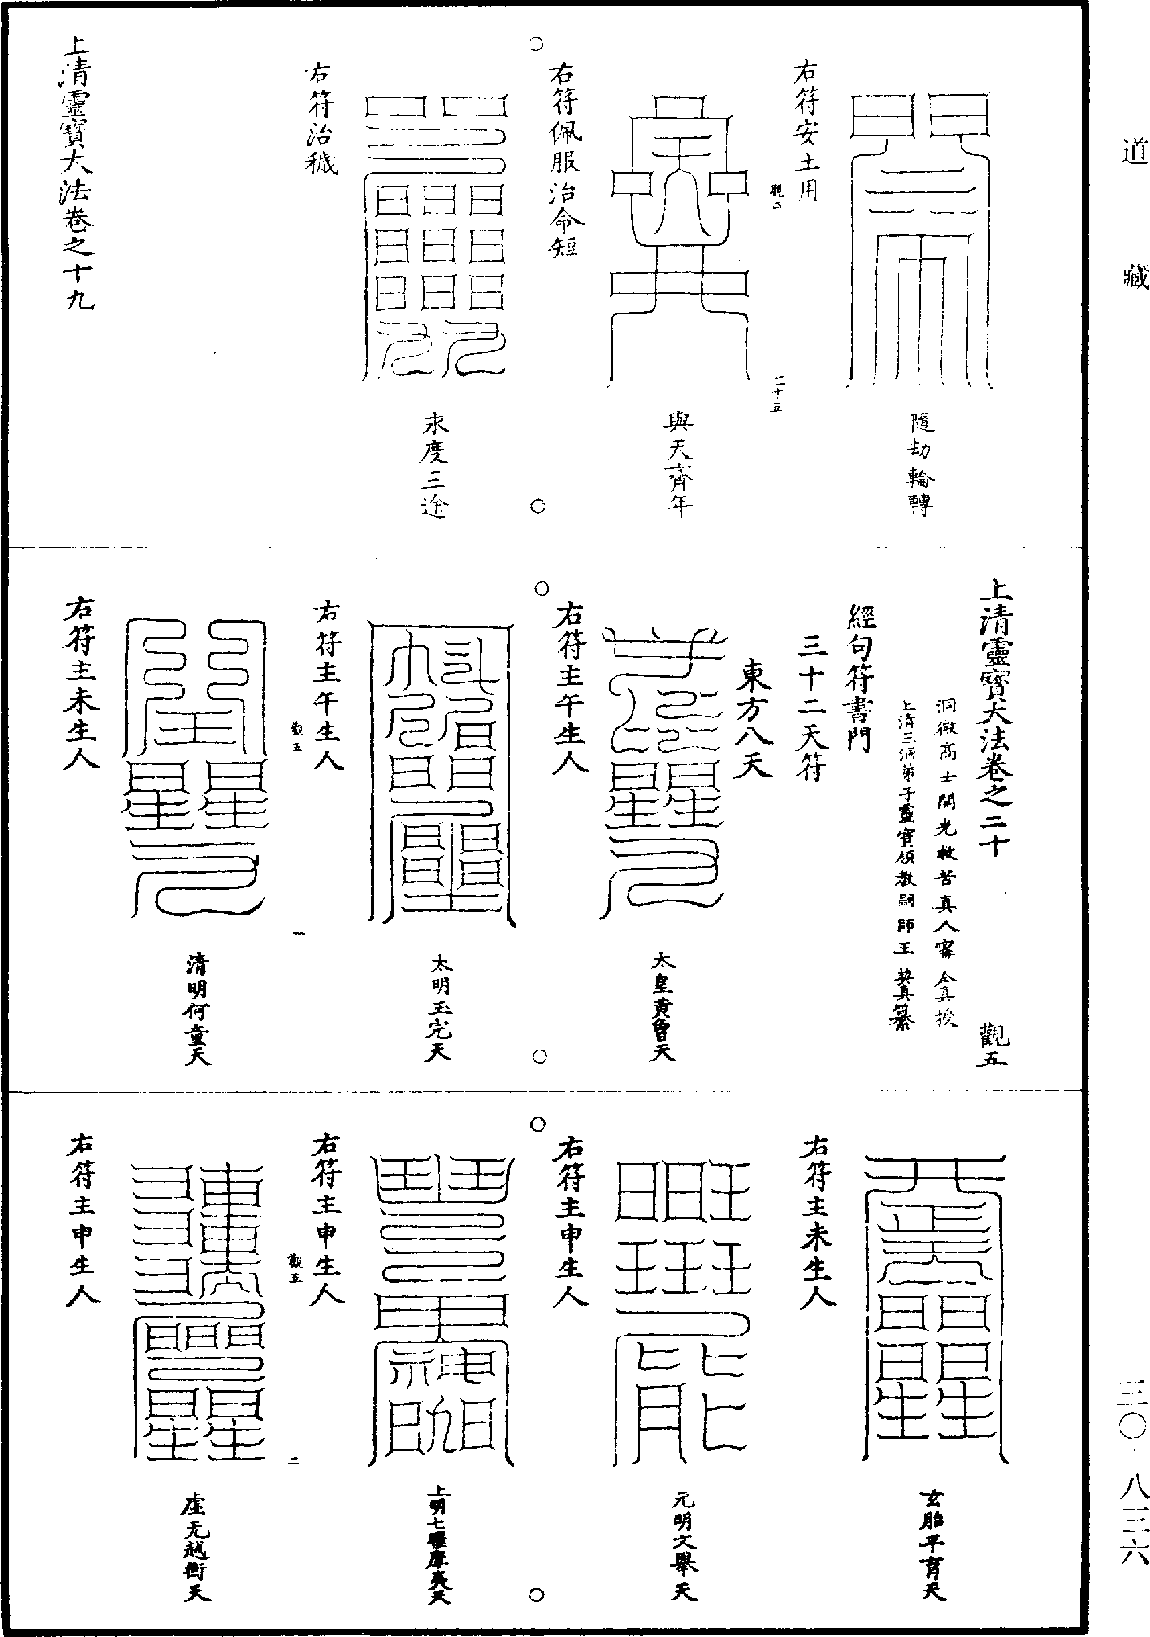 道藏
隨劫輪轉
右符安土用
觀四
二十五
與天齊年
右符佩服治命短
永度三途
右符治穢
上清靈寶大法卷之十九
上清靈寶大法卷之二十
觀五
洞微高士開光救苦真人甯全真授
上清三洞弟子靈寶領教嗣師王契真纂
經句符書門
三十二天符
東方八天
太皇黃曾天
右符主午生人
太明玉完天
右符主午生人
觀五
一
清明何童天
右符主未生人
玄胎平育天
右符主未生人
元明文舉天
右符主申生人
上明七曜摩夷天
右符主申生人
觀五
二
虛无越衡天
右符主申生人
三〇·八三六